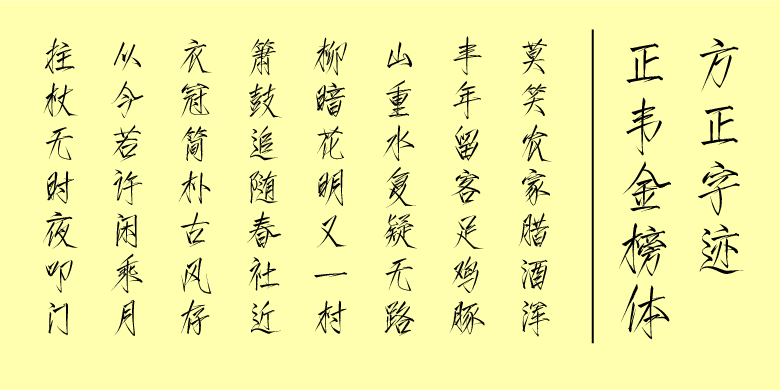 方正字迹
正韦金榜体
莫笑农家腊酒浑
丰年留客足鸡豚
山重水复疑无路
柳暗花明又一村
箫鼓追随春社近
衣冠简朴古风存
从今若许闲乘月
拄杖无时夜叩门